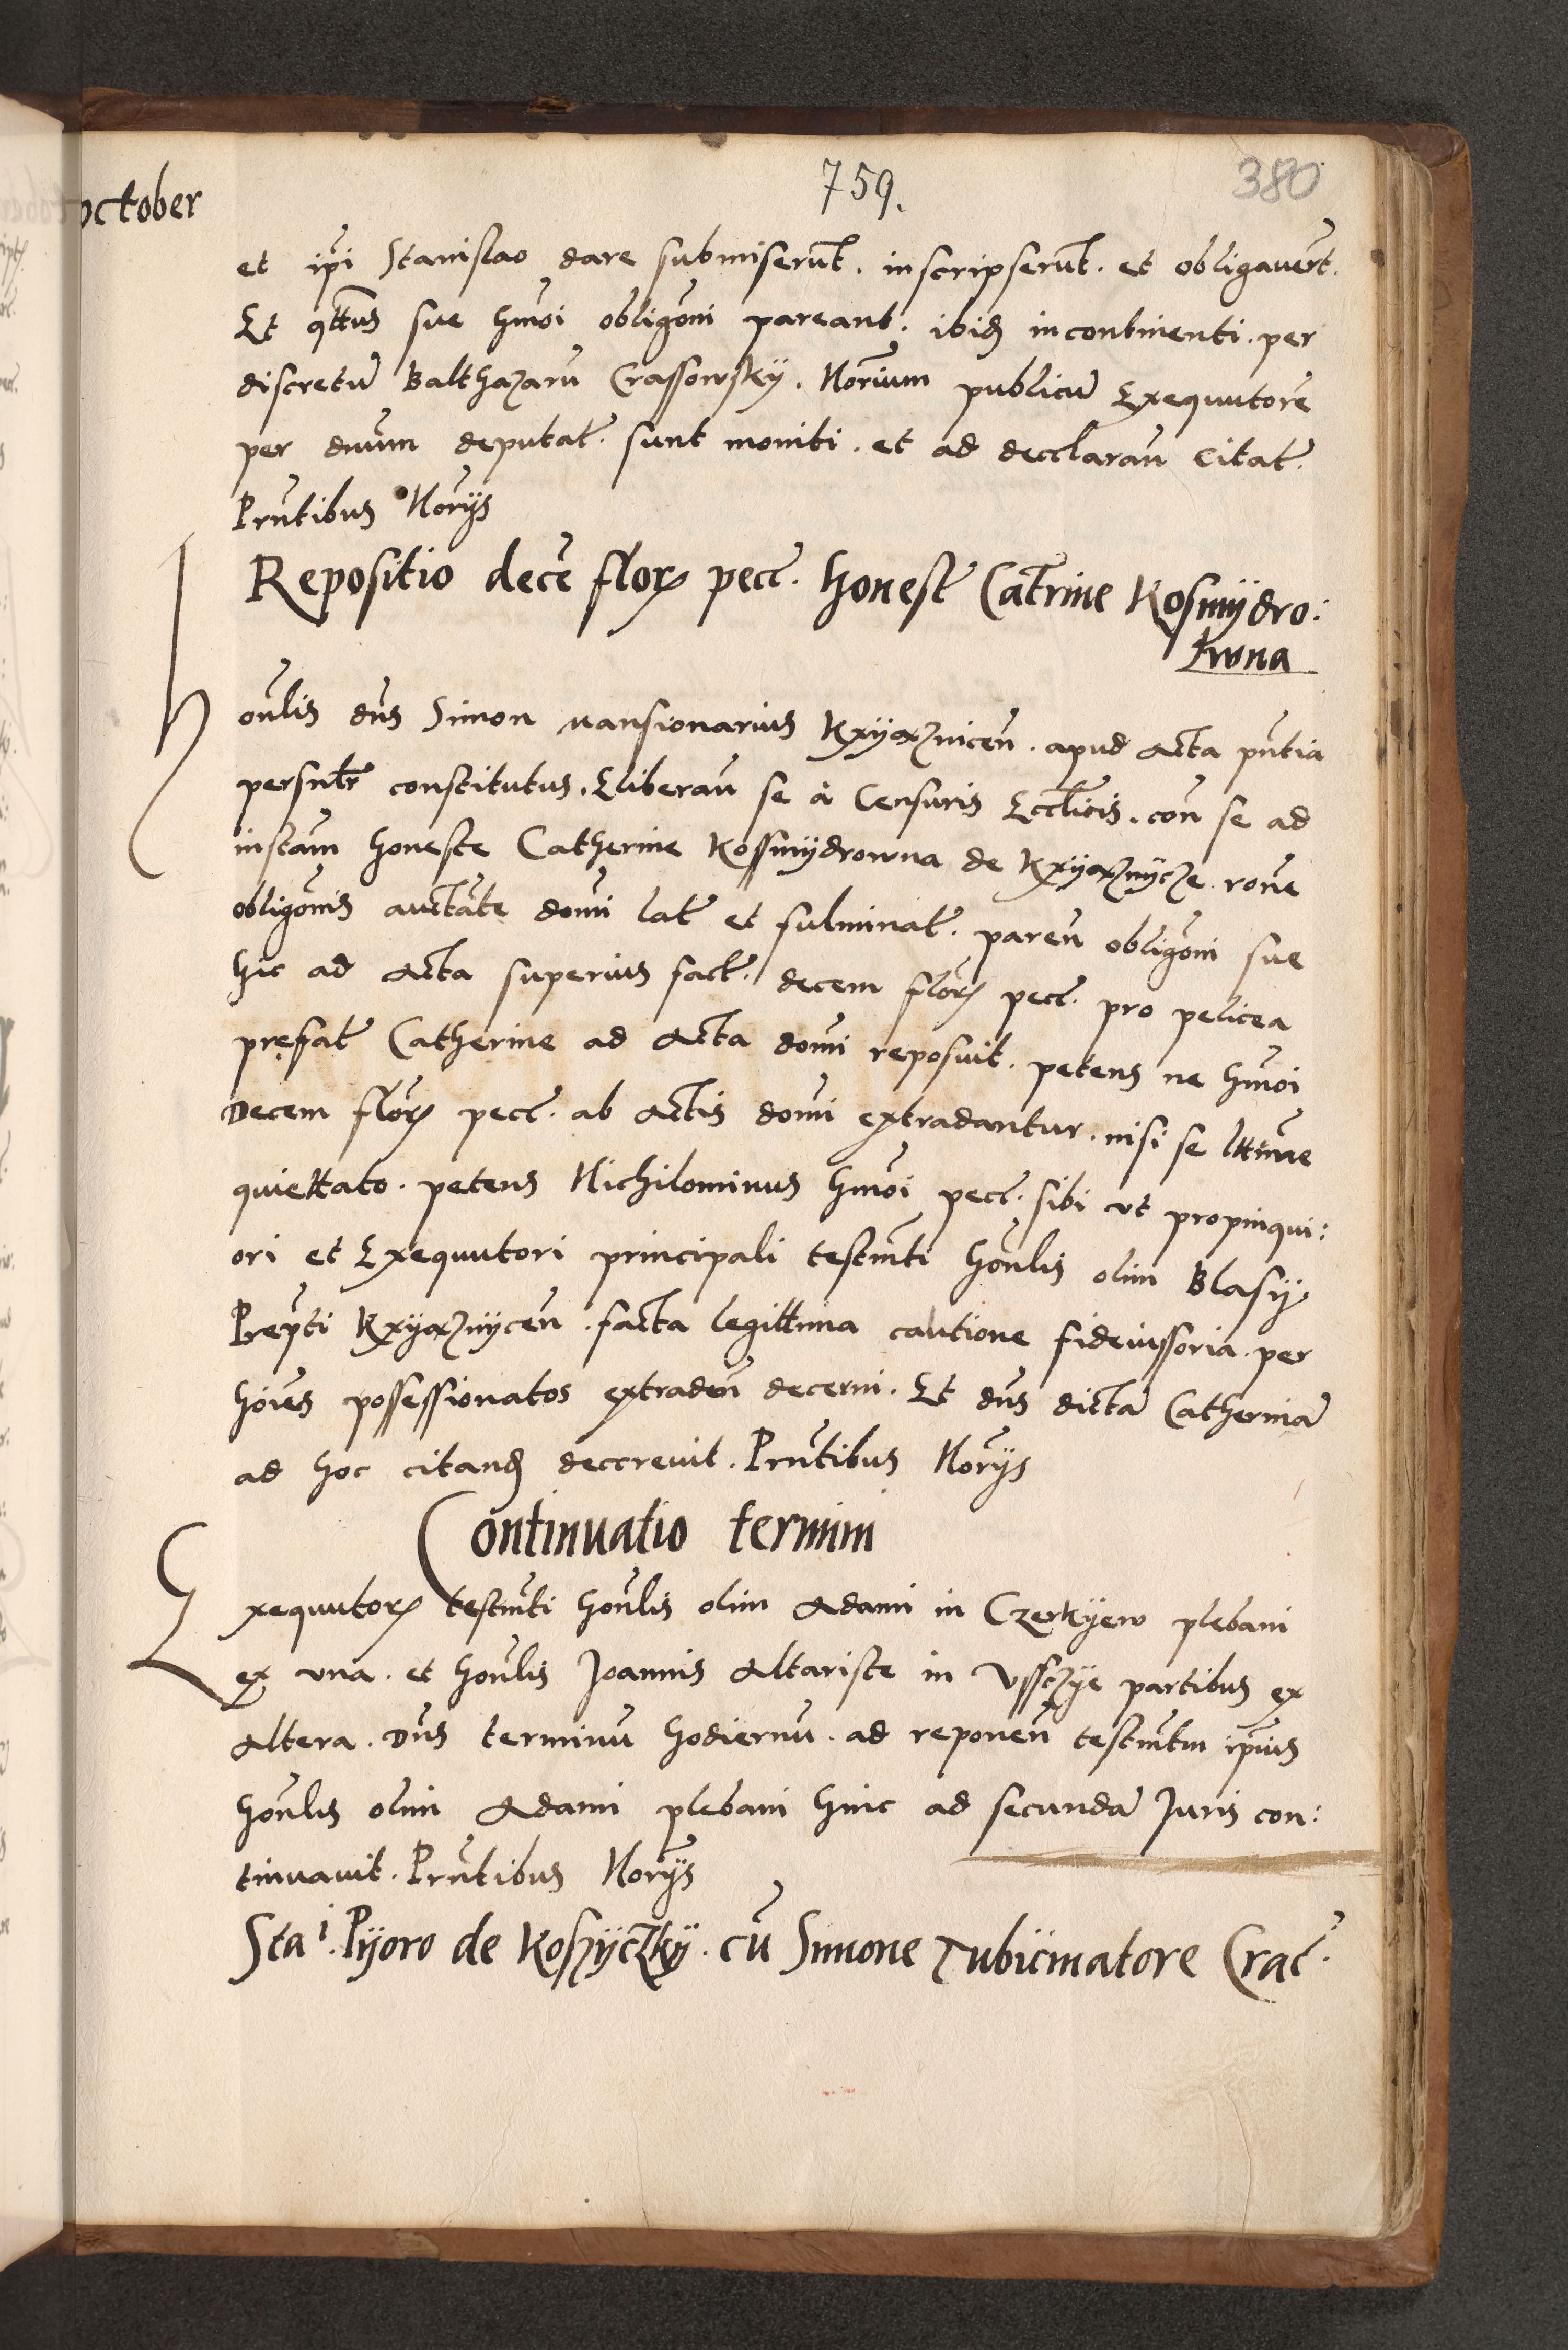 759.
380
october
et ip̃i Stanislao dare submiserũt. inscripserũt. et obligauer̃t.
Et q̃ttus sue hm̃oi oblig̃oni pareant. ibid̃ incontinenti. per
discretũ Balthazarũ Crassowskÿ. Nor̃ium publicũ Exequutorẽ
per dñum deputat̃. sunt moniti. et ad decclarañ citat̃.
Prñtibus Nor̃ijs
Repositio decẽ flor̃ pecĩ. honest̃ Cat̃rine Kosmÿdro:
wna
Hoñlis dñs Simon mansionarius Kxÿaznicen̄. apud Acta pñtia
persñltr̃ constitutus. Eliberañ se à Censuris Eccl̃icis. con̄ se ad
instañ honeste Catherine Kossmÿdrowna de Kxÿaznÿcze. roñe
oblig̃onis auct̃ate dom̃i lat̃ et fulminat̃. pareñ oblig̃oni sue
hic ad Acta superius fact̃. decem flor̃ pecĩ. pro pelicea
pręfat̃ Catherine ad Acta dom̃i reposuit. petens ne hm̃oi
Decem flor̃ pecĩ. ab Actis dom̃i extradantur. nisi se ltt̃ime
quiettato. petens Nichilominus hm̃oi pecĩ. sibi vt propinqui:
ori et Exequutori principali testm̃ti hoñlis olim Blasÿ
Prep̃ti Kxÿaznÿcen̄. facta legittima cautione fideiussoria. per
hoĩes possessionatos extradeñ decerni. Et dñs dictã Catherinã
ad hoc citand̃ deccreuit. Prñtibus Nor̃ijs
Continuatio termini
Exequutor̃ testm̃ti hoñlis olim Adami in Czerkÿew plebani
ex vna. et hoñlis Joannis Altariste in Vssczÿe partibus ex
Altera. Dñs terminũ hodiernũ. ad reponeñ testm̃tm ip̃ius
hoñlis olim Adami plebani hinc ad secundã Juris con:
tinuauit. Prñtibus Nor̃ijs
Stai. Pÿoro de Koszÿczkÿ. cũ Simone Tubicinatore Crac̃.